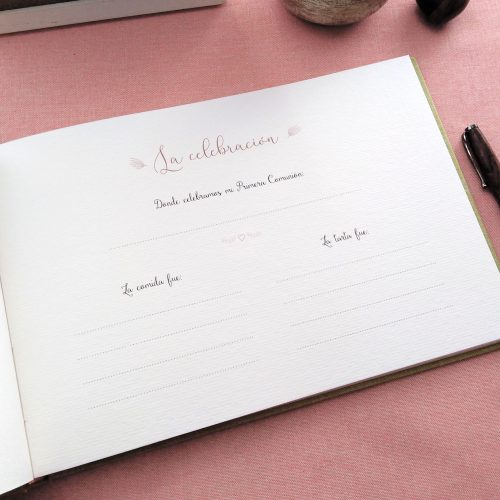 La celebración
Donde celebramos mi Primera Comunión:
La comida fue:
La tarta fue: